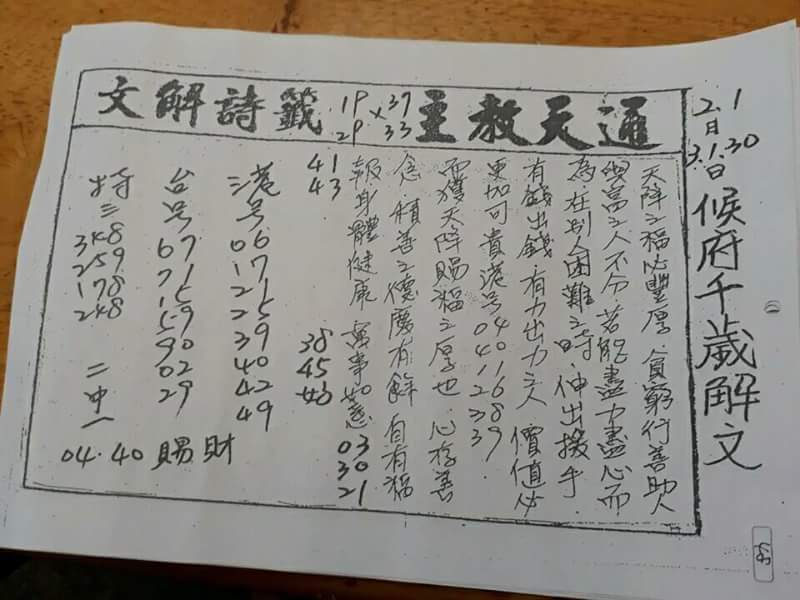 通天教主
19 37
× 
29 33
籤詩解文
2.1
30
3.1日
候府千歲解文
天降之福必豐厚.貧窮行善助人
與富之人不分.若能盡力盡心而
為.在別人困難之時.伸出援手.
有錢出錢 有力出力之人 價值必
更加可貴 港号 04 40 16 28 39.
而獲天降賜福之厚也.心存善
念 積善之德慶有餘 自有福
報身體健康 萬事如意 03 30 21
41 43 38 45
港号 06 17 21 25 39 40 42 49
台号 67 71 15 59 90 02 29
特三 348 259 178 248 二中一
04.40 賜財